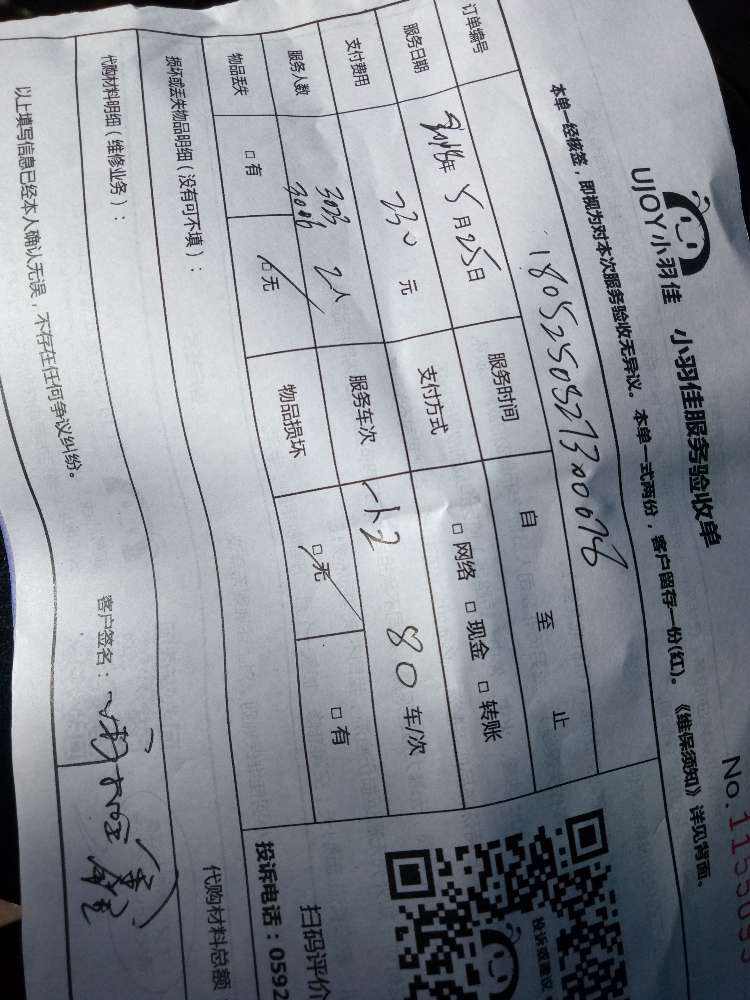 UJOY小羽佳 小羽佳服务验收单
No.
本单一经核签，即视为对本次服务验收无异议。本单一式两份，客户留存一份(红)。《维保须知》详见背面。
订单编号 180525052
服务日期 2018年 5月25日 服务时间 自 至 止
支付费用 230元 支付方式 □网络 □现金 □转账
服务人数 303 2人 3006 服务车次 80 车/次
物品丢失 □有 □无 物品损坏 □无 □有
损坏或丢失物品明细（没有可不填）：
代购材料明细（维修业务）： 代购材料总额
以上填写信息已经本人确认无误，不存在任何争议纠纷。 客户签名：
投诉或建议
扫码评价
投诉电话：0592